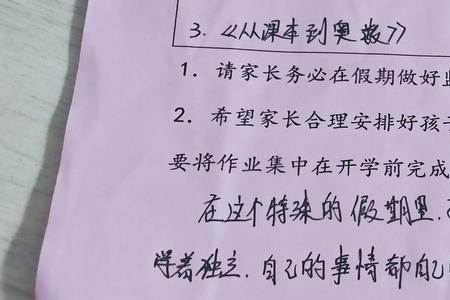 3. 《从课本到奥数》
1. 请家长务必在假期做好
2. 希望家长合理安排好孩
要将作业集中在开学前完成
在这个特殊的假期里,
学着独立.自己的事情都自己